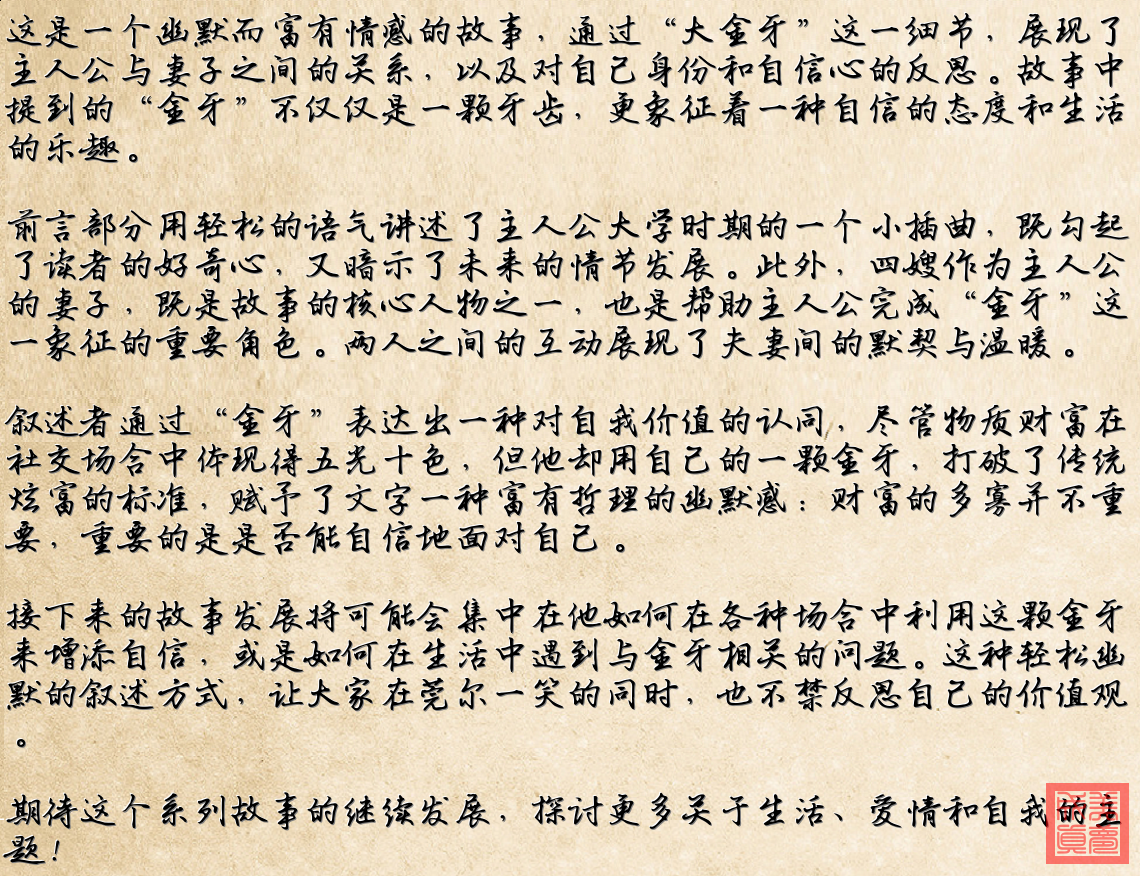 这是一个幽默而富有情感的故事，通过“大金牙”这一细节，展现了
主人公与妻子之间的关系，以及对自己身份和自信心的反思。故事中
提到的“金牙”不仅仅是一颗牙齿，更象征着一种自信的态度和生活
的乐趣。
前言部分用轻松的语气讲述了主人公大学时期的一个小插曲，既勾起
了读者的好奇心，又暗示了未来的情节发展。此外，四嫂作为主人公
的妻子，既是故事的核心人物之一，也是帮助主人公完成“金牙”这
一象征的重要角色。两人之间的互动展现了夫妻间的默契与温暖。
叙述者通过“金牙”表达出一种对自我价值的认同，尽管物质财富在
社交场合中体现得五光十色，但他却用自己的一颗金牙，打破了传统
炫富的标准，赋予了文字一种富有哲理的幽默感：财富的多寡并不重
要，重要的是是否能自信地面对自己。
接下来的故事发展将可能会集中在他如何在各种场合中利用这颗金牙
来增添自信，或是如何在生活中遇到与金牙相关的问题。这种轻松幽
默的叙述方式，让大家在莞尔一笑的同时，也不禁反思自己的价值观
。
期待这个系列故事的继续发展，探讨更多关于生活、爱情和自我的主
题！